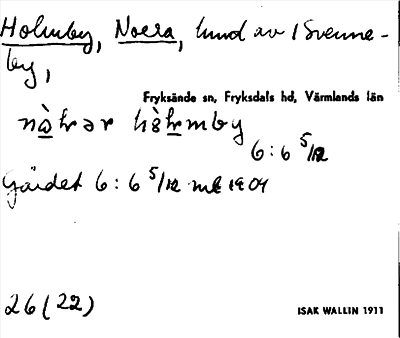 Holmby, Noera, hmd av 1 Svenne-
by,
Fryksände sn, Fryksdals hd, Värmlands län
6:6 5/12
Gärdet 6:6 5/12 mt 1904
26 (22)
ISAK WALLIN 1911